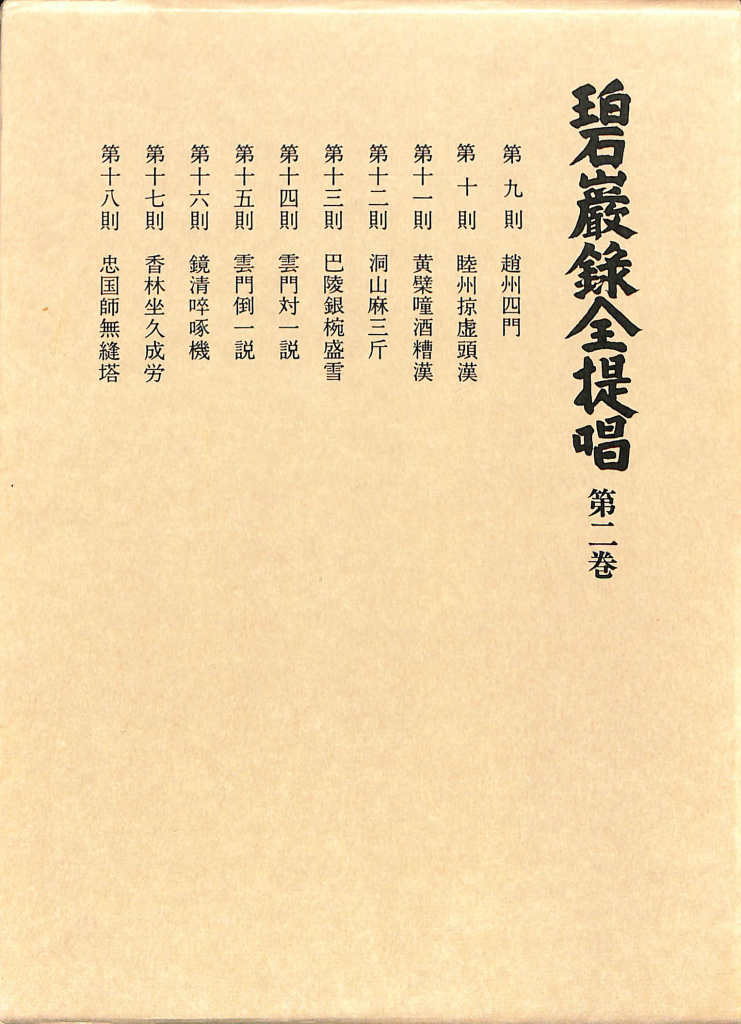 碧巌録全提唱 第二巻
第九則 趙州四門
第十則 睦州掠虚頭漢
第十一則 黄檗噇酒糟漢
第十二則 洞山麻三斤
第十三則 巴陵銀椀盛雪
第十四則 雲門対一説
第十五則 雲門倒一説
第十六則 鏡清啐啄機
第十七則 香林坐久成労
第十八則 忠国師無縫塔